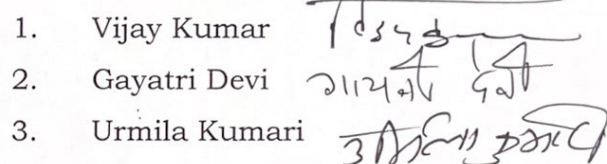 1. Vijay Kumar
2. Gayatri Devi गायत्री देवी
3. Urmila Kumari उर्मिला कुमारी